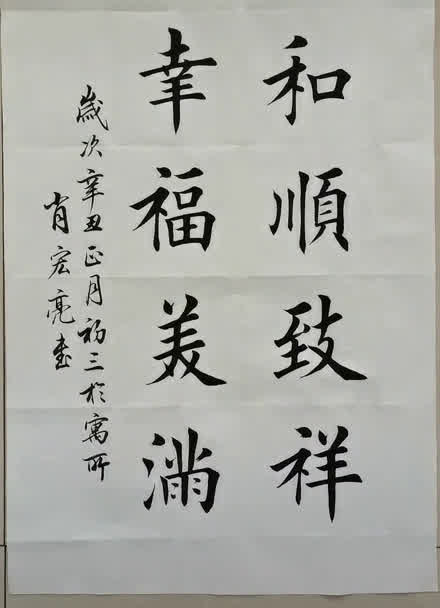 和順致祥
幸福美滿
歲次辛丑正月初三於寓所
肖宏亮書